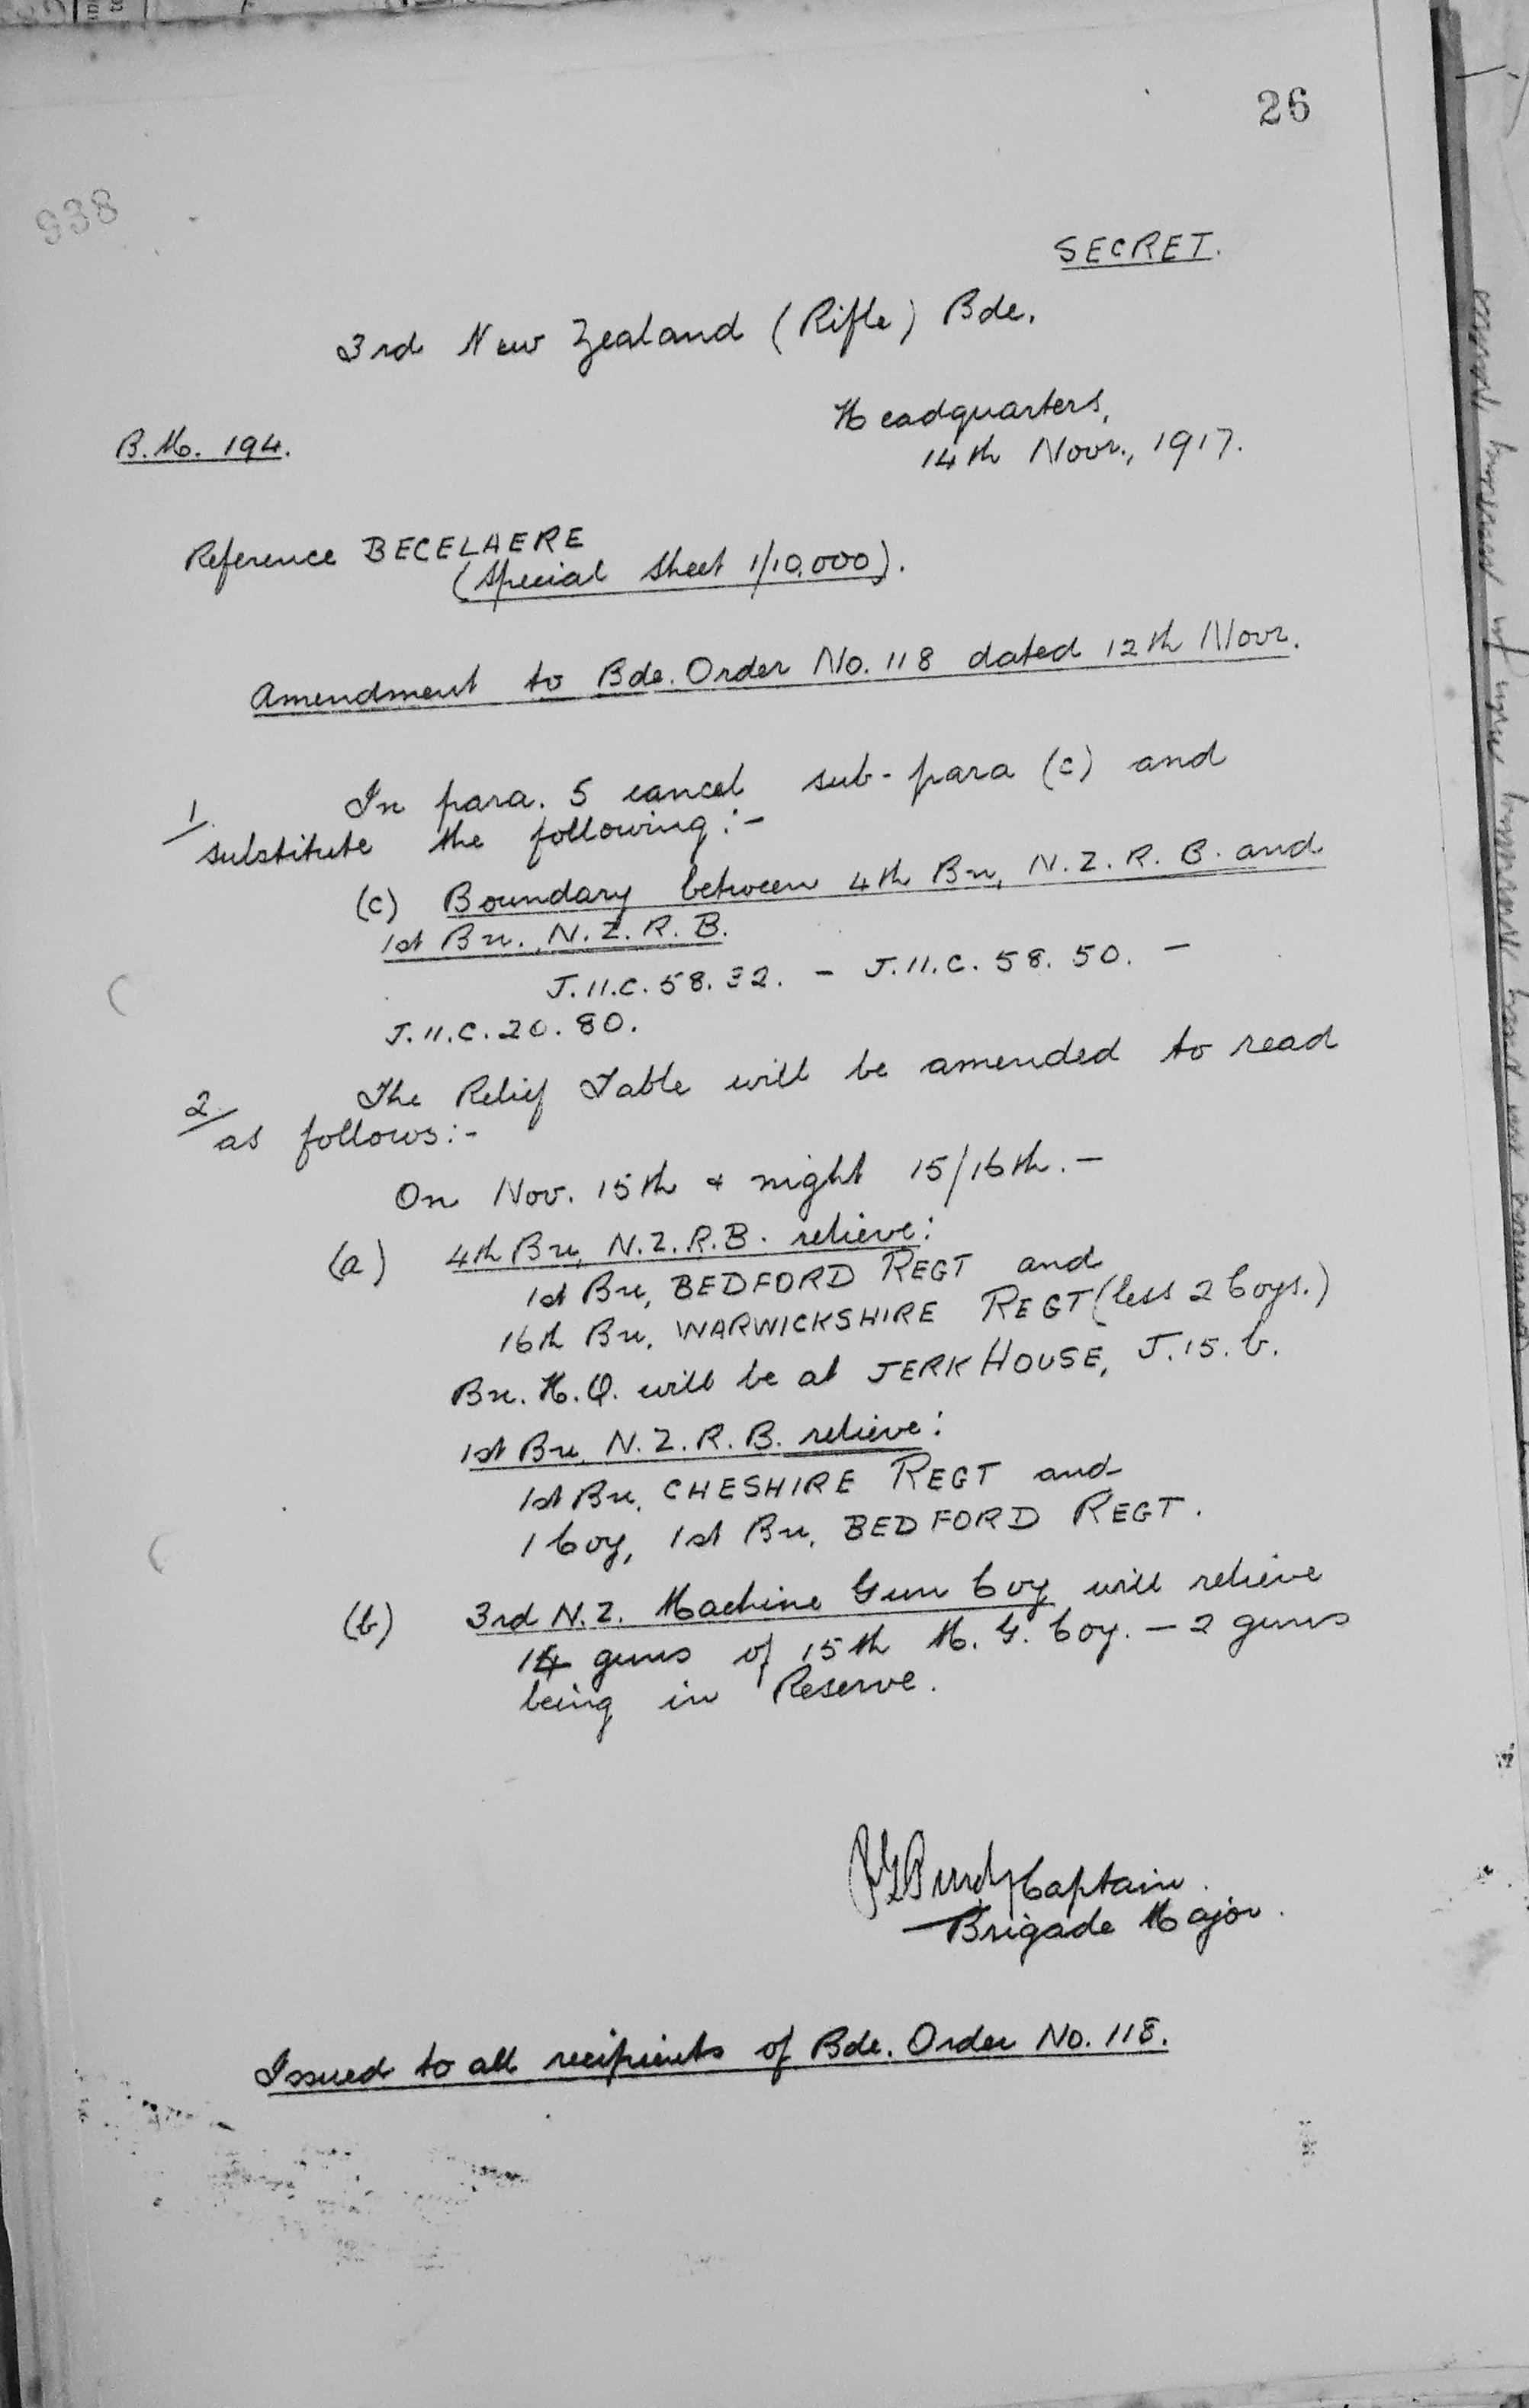 26
938
SECRET.
3rd New Zealand (Rifle) Bde.
Headquarters,
B.M. 194.
14th Novr., 1917.
Reference BECELAERE
(Special Sheet 1/10,000).
Amendment to Bde. Order No. 118 dated 12th Novr.
1/ In para. 5 cancel sub-para (c) and
substitute the following:-
(c) Boundary between 4th Bn, N.Z.R.B. and
1st Bn. N.Z.R.B.
J.11.C.58.32. - J.11.C.58.50. -
J.11.C.20.80.
2/ The Relief Table will be amended to read
as follows:-
On Nov. 15th & night 15/16th. -
(a) 4th Bn, N.Z.R.B. relieve:
1st Bn, BEDFORD REGT and
16th Bn. WARWICKSHIRE REGT (less 2 Coys.)
Bn. H.Q. will be at JERK HOUSE, J.15.b.
1st Bn, N.Z.R.B. relieve:
1st Bn, CHESHIRE REGT and
1 Coy, 1st Bn, BEDFORD REGT.
(b) 3rd N.Z. Machine Gun Coy will relieve
14 guns of 15th M.G. Coy. - 2 guns
being in Reserve.
Captain.
Brigade Major.
Issued to all recipients of Bde. Order No. 118.